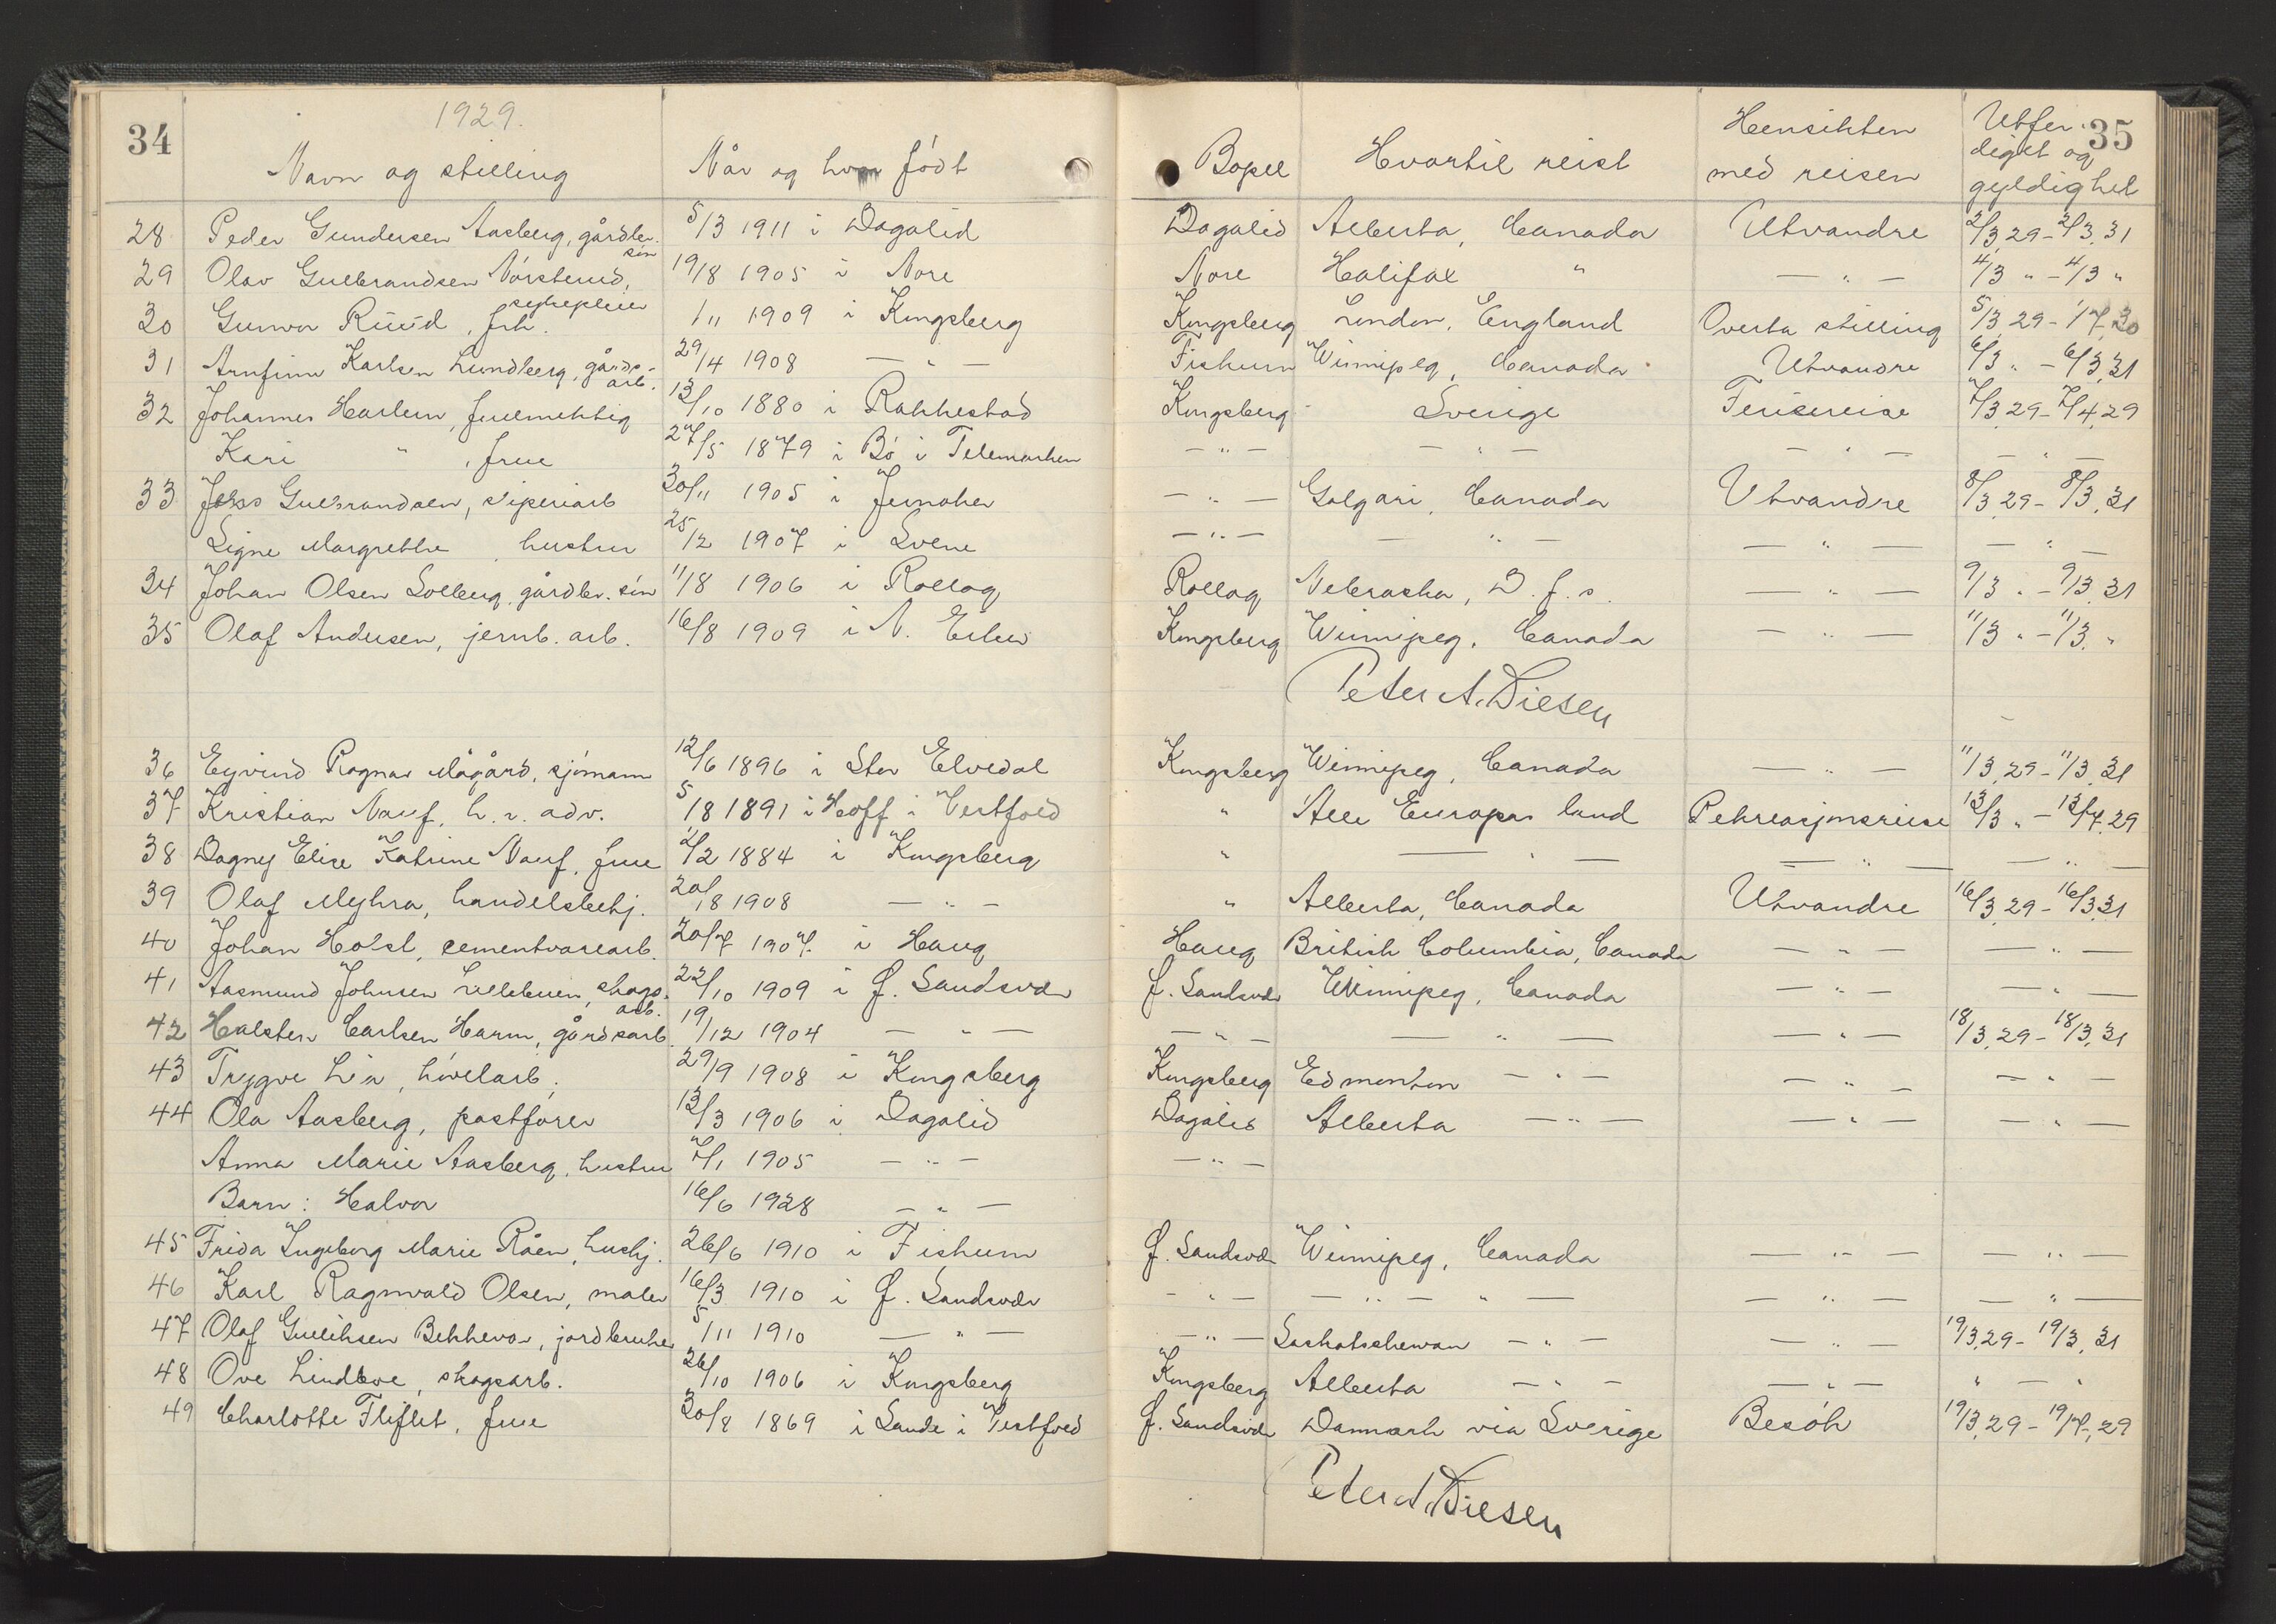 34
1929.
35
Navn og stilling Når og hvor født Bopel Hvortil reist Hensikten med reisen Utfer- diget og gyldighet
28 Peder Gundersen Aasberg, gårdbr. søn 5/3 1911 i Dagalid Dagalid Alberta, Canada Utvandre 2/3.29 - 2/3.31
29 Olav Gulbrandsen Nørsterud, 19/8 1905 i Nore Nore Halifax " — " — 4/3 " - 4/3 "
30 Gunvor Ruud, frk. sykepleier 1/11 1909 i Kongsberg Kongsberg London, England Overta stilling 5/3 29 - 1/7.30
31 Arnfinn Karlsen Lundberg, gårds- arb. 29/4 1908 — " — Fiskum Winnipeg, Canada Utvandre 6/3 " - 6/3.31
32 Johannes Harlem, fuelmektig 13/10 1880 i Rakkestad Kongsberg Sverige Feriereise 7/3.29 - 7/4.29
Kari " , frue 27/5 1879 i Bø i Telemarken — " — — " — — " — — " —
33 Jens Gulbrandsen, sliperiarb 30/11 1905 i Jernaker — " — Galgari, Canada Utvandre 8/3.29 - 8/3.31
Signe Margrethe hustru 25/12 1907 i Svene — " — — " — — " — — " —
34 Johan Olsen Solberg, gårdbr. søn 11/8 1906 i Rollag Rollag Nebraska, D.f.s. — " — 9/3 " - 9/3.31
35 Olaf Andersen, jernb. arb. 16/8 1909 i N. Eiker Kongsberg Winnipeg, Canada — " — 11/3 " - 11/3. "
Peter A. Diesen
36 Eyvind Ragnar Mågård, sjømann 12/6 1896 i Stor Elvedal Kongsberg Winnipeg, Canada — " — 11/3.29 - 11/3.31
37 Kristian Nauf, h.r. adv. 5/8 1891 i Hoff i Vestfold " Alle Europas land Rekreasjonsreise 13/3 " - 13/4.29
38 Dagny Elise Katrine Nauf, frue 2/2 1884 i Kongsberg " — " — — " — — " —
39 Olaf Myhra, handelsbetj. 20/8 1908 — " — " Alberta, Canada Utvandre 16/3.29 - 16/3.31
40 Johan Holst, cementvarearb. 20/7 1907 i Haug Haug British Columbia, Canada — " — — " —
41 Aasmund Johnsen skogs- arb. 22/10 1909 i Ø. Sandsvær Ø. Sandsvær Winnipeg, Canada — " — — " —
42 Halsten Carlsen Harm, gårdsarb. 19/12 1904 — " — — " — — " — — " — 18/3.29 - 18/3.31
43 Trygve Lia, høvelarb. 29/9 1908 i Kongsberg Kongsberg Edmonton — " — — " — — " —
44 Ola Aasberg, postfører 13/3 1906 i Dagalid Dagalid Alberta — " — — " — — " —
Anna Marie Aasberg, hustru 7/1 1905 — " — — " —
Barn: Halvor 16/6 1928 — " —
45 Frida Ingeborg Marie Råen, hushj. 26/6 1910 i Fiskum Ø. Sandsvær Winnipeg, Canada — " — — " —
46 Karl Ragnvald Olsen, maler 16/3 1910 i Ø. Sandsvær — " — — " — " — — " — — " —
47 Olaf Gulliksen Bekkevar, jordbruker 5/11 1910 — " — — " — Saskatschewan — " — — " — 19/3.29 - 19/3.31
48 Ove Lindtve, skogsarb. 26/10 1906 i Kongsberg Kongsberg Alberta — " — — " — " — "
49 Charlotte Fliflet, frue 30/8 1869 i Sande i Vestfold Ø. Sandsvær Danmark via Sverige Besøk 19/3.29 - 19/7.29
Peter A. Diesen